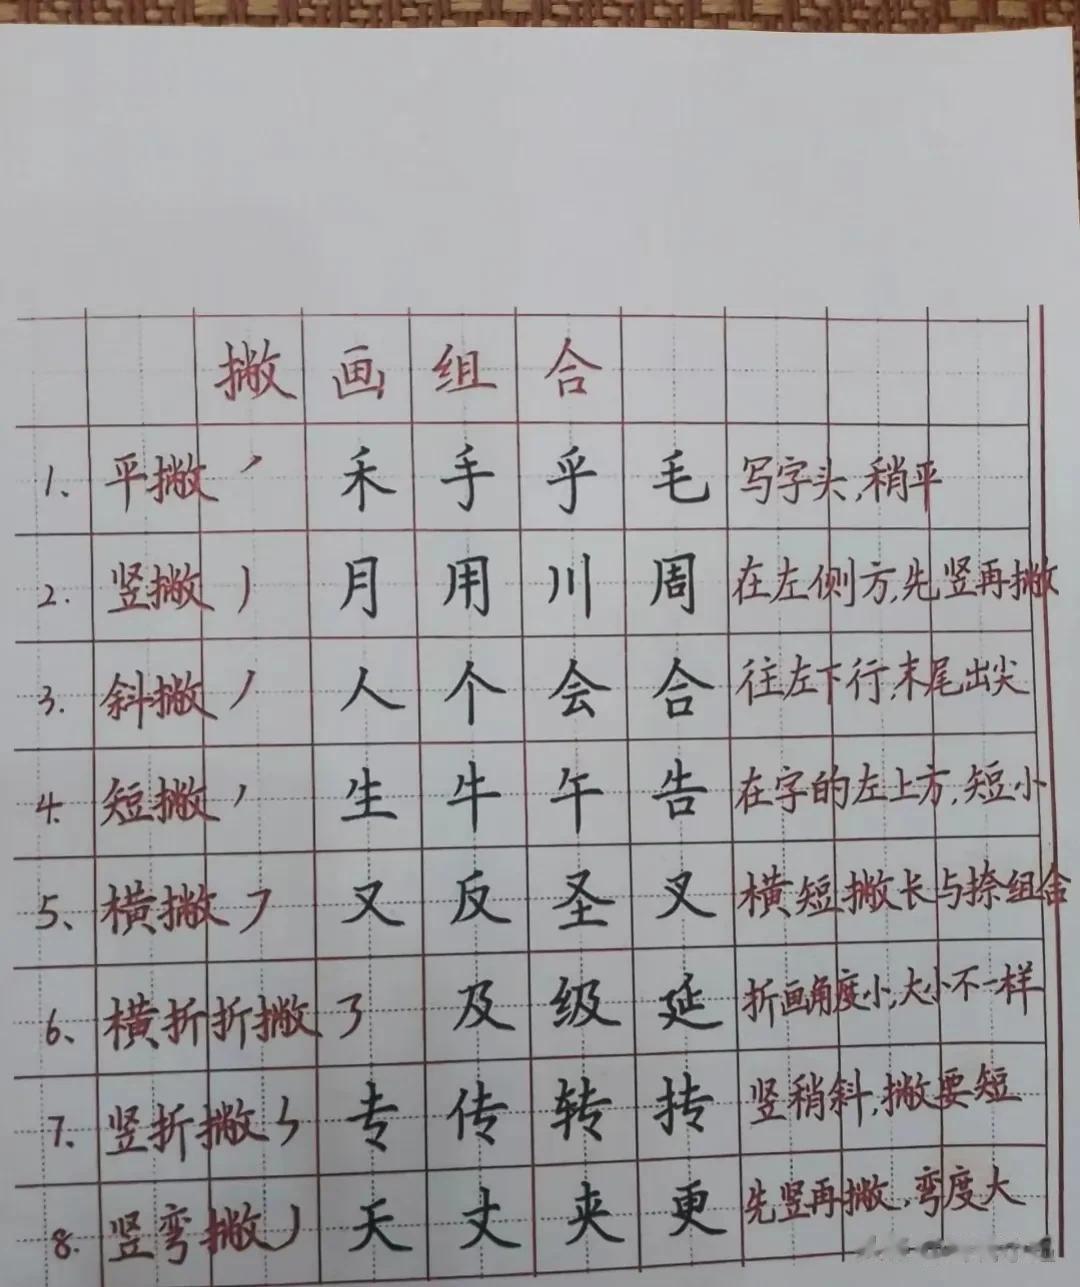 撇画组合
1、平撇 ㇒ 禾 手 乎 毛 写字头,稍平
2. 竖撇 丿 月 用 川 周 在左侧方,先竖再撇
3. 斜撇 丿 人 个 会 合 往左下行,末尾出尖
4. 短撇 ㇒ 生 牛 午 告 在字的左上方,短小
5、横撇 ㇇ 又 反 圣 叉 横短撇长与捺组合
6、横折折撇 ㇋ 及 级 延 折画角度小,大小不一样
7、竖折撇 ㇉ 专 传 转 抟 竖稍斜,撇要短
8. 竖弯撇 丿 天 丈 夹 更 先竖再撇,弯度大